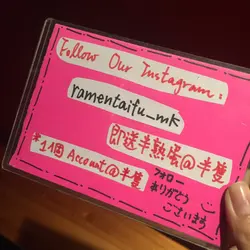 Follow Our Instagram:
ramentaifu_mk
即送半熟蛋@半隻
*1個Account@半隻
フォロー
ありがとう
ございます